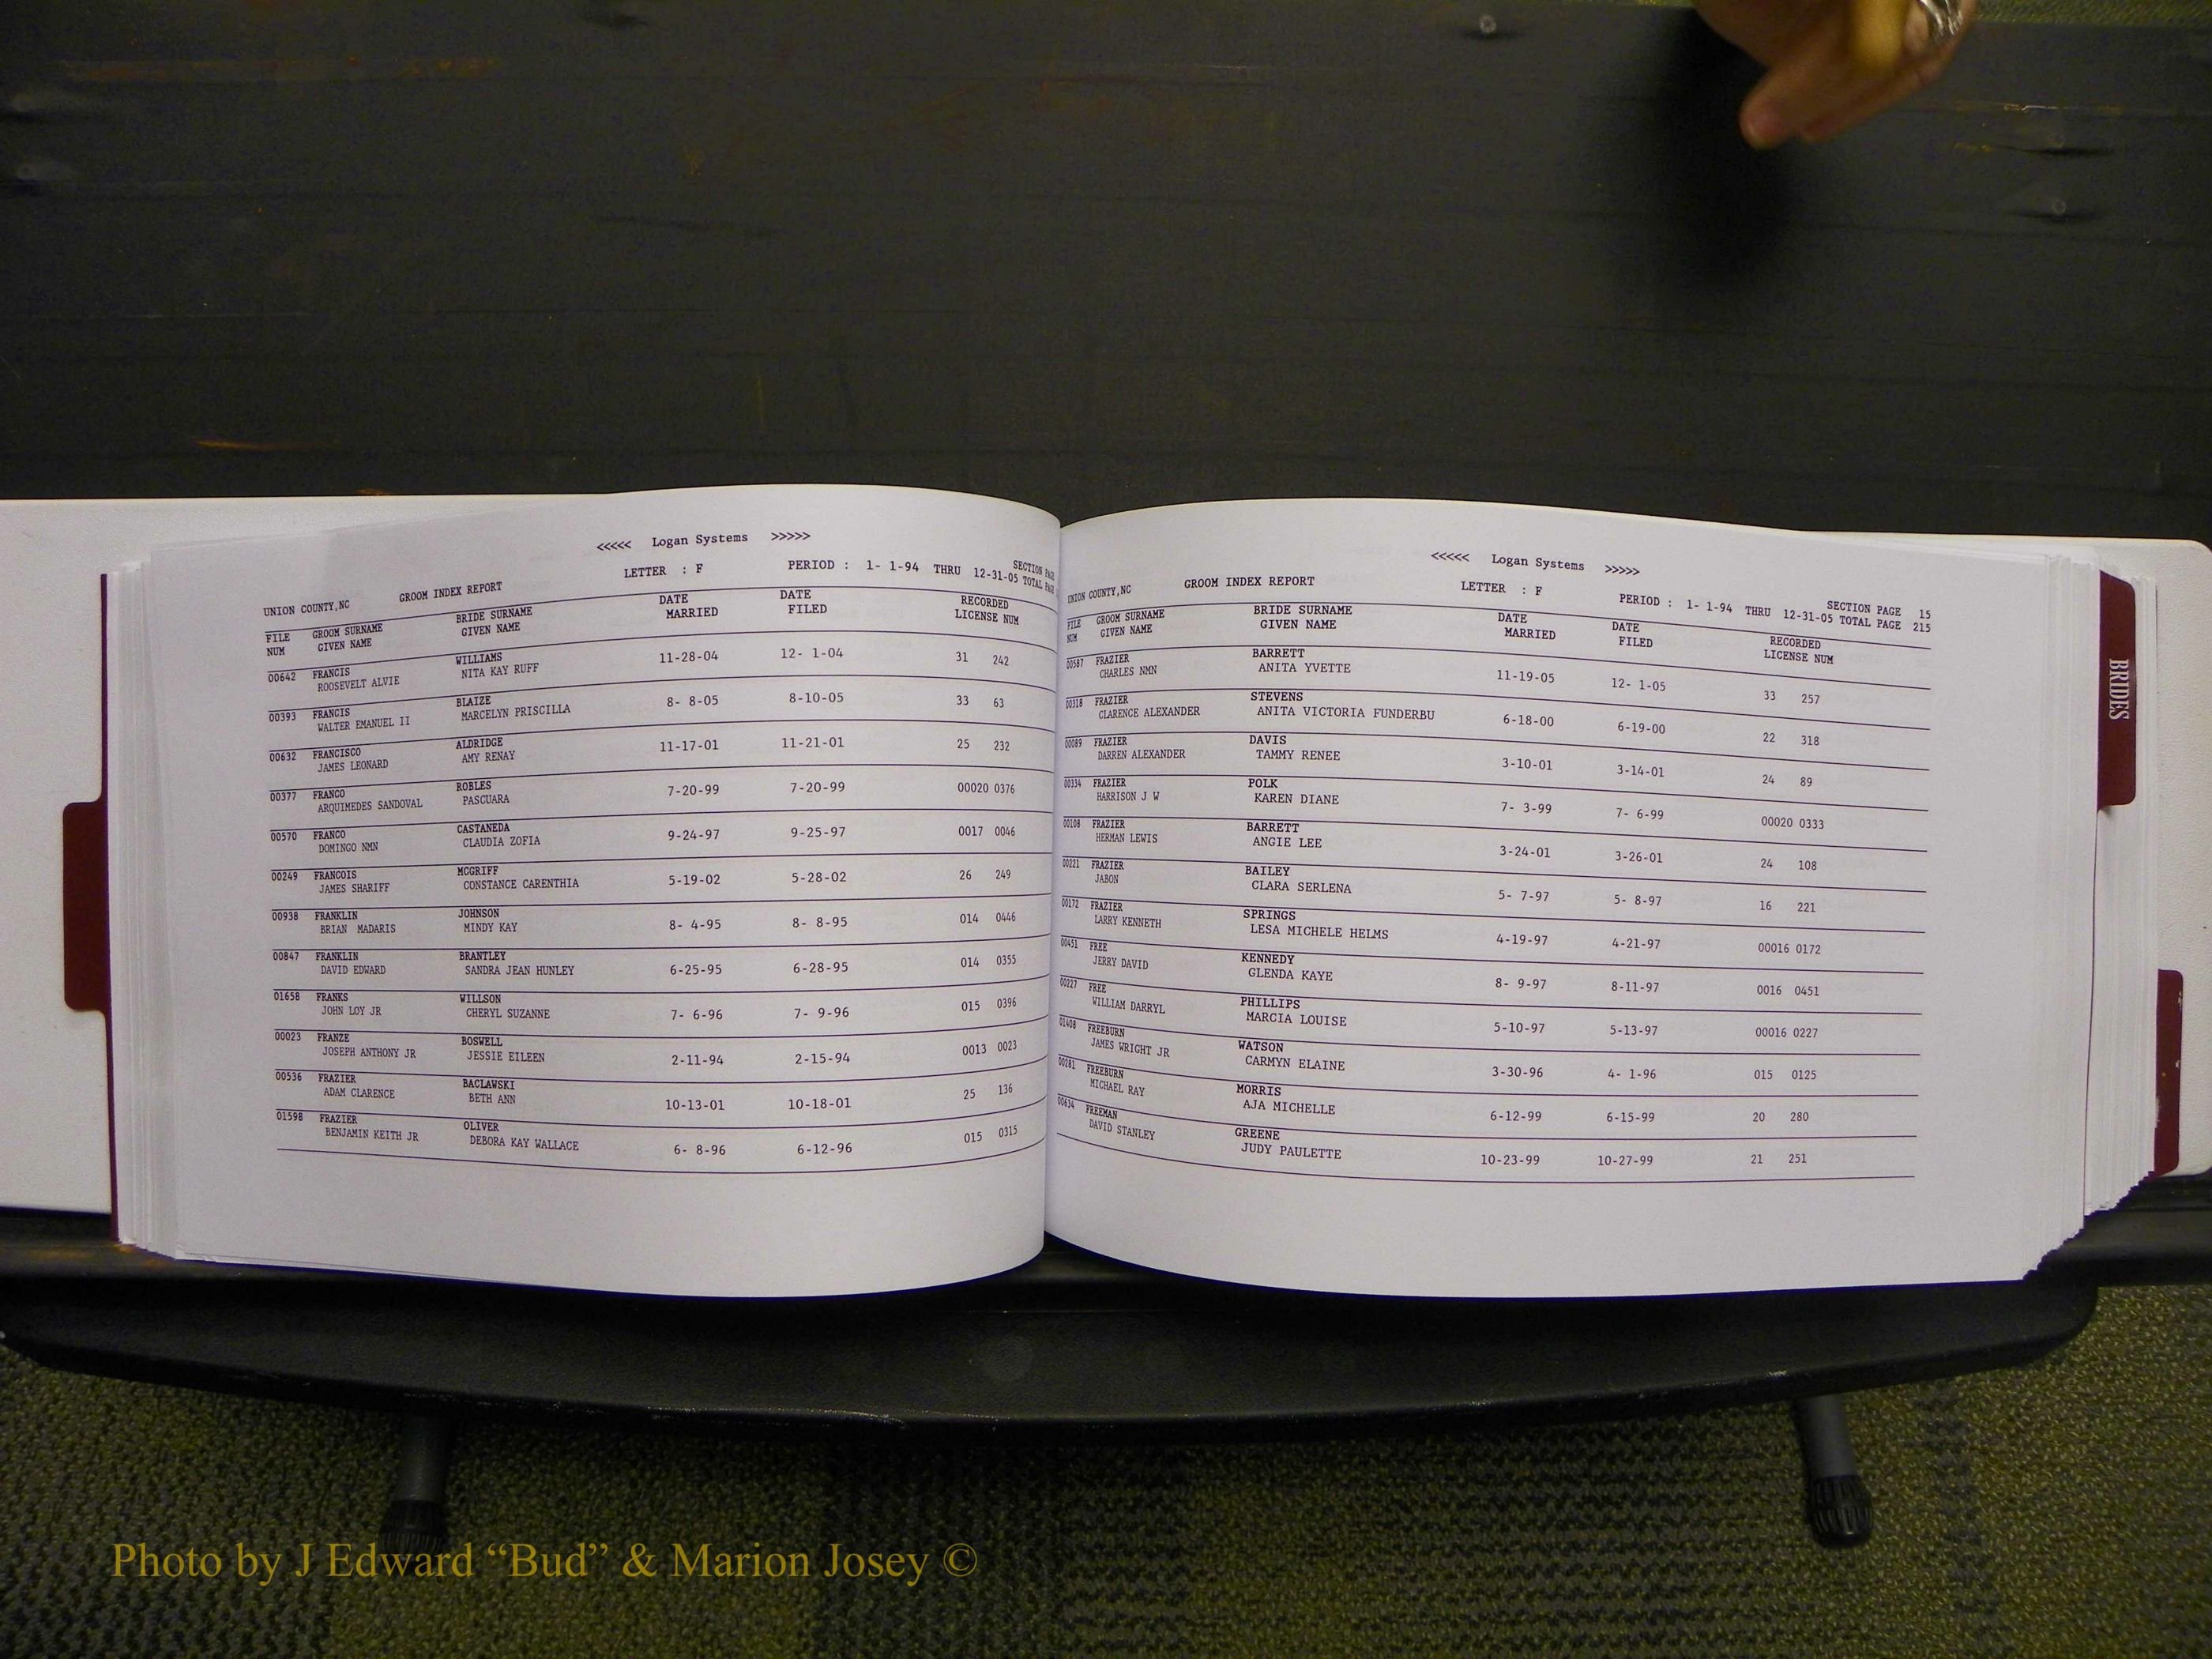 <<<<< Logan Systems >>>>>
UNION COUNTY,NC GROOM INDEX REPORT LETTER : F PERIOD : 1- 1-94 THRU 12-31-05 SECTION PAGE
TOTAL PAGE
FILE GROOM SURNAME BRIDE SURNAME DATE DATE RECORDED
NUM GIVEN NAME GIVEN NAME MARRIED FILED LICENSE NUM
00642 FRANCIS WILLIAMS 11-28-04 12- 1-04 31 242
ROOSEVELT ALVIE NITA KAY RUFF
00393 FRANCIS BLAIZE 8- 8-05 8-10-05 33 63
WALTER EMANUEL II MARCELYN PRISCILLA
00632 FRANCISCO ALDRIDGE 11-17-01 11-21-01 25 232
JAMES LEONARD AMY RENAY
00377 FRANCO ROBLES 7-20-99 7-20-99 00020 0376
ARQUIMEDES SANDOVAL PASCUARA
00570 FRANCO CASTANEDA 9-24-97 9-25-97 0017 0046
DOMINGO NMN CLAUDIA ZOFIA
00249 FRANCOIS MCGRIFF 5-19-02 5-28-02 26 249
JAMES SHARIFF CONSTANCE CARENTHIA
00938 FRANKLIN JOHNSON 8- 4-95 8- 8-95 014 0446
BRIAN MADARIS MINDY KAY
00847 FRANKLIN BRANTLEY 6-25-95 6-28-95 014 0355
DAVID EDWARD SANDRA JEAN HUNLEY
01658 FRANKS WILLSON 7- 6-96 7- 9-96 015 0396
JOHN LOY JR CHERYL SUZANNE
00023 FRANZE BOSWELL 2-11-94 2-15-94 0013 0023
JOSEPH ANTHONY JR JESSIE EILEEN
00536 FRAZIER BACLAWSKI 10-13-01 10-18-01 25 136
ADAM CLARENCE BETH ANN
01598 FRAZIER OLIVER 6- 8-96 6-12-96 015 0315
BENJAMIN KEITH JR DEBORA KAY WALLACE
<<<<< Logan Systems >>>>>
UNION COUNTY,NC GROOM INDEX REPORT LETTER : F PERIOD : 1- 1-94 THRU 12-31-05 SECTION PAGE 15
TOTAL PAGE 215
FILE GROOM SURNAME BRIDE SURNAME DATE DATE RECORDED
NUM GIVEN NAME GIVEN NAME MARRIED FILED LICENSE NUM
00587 FRAZIER BARRETT 11-19-05 12- 1-05 33 257
CHARLES NMN ANITA YVETTE
00318 FRAZIER STEVENS 6-18-00 6-19-00 22 318
CLARENCE ALEXANDER ANITA VICTORIA FUNDERBU
00089 FRAZIER DAVIS 3-10-01 3-14-01 24 89
DARREN ALEXANDER TAMMY RENEE
00334 FRAZIER POLK 7- 3-99 7- 6-99 00020 0333
HARRISON J W KAREN DIANE
00108 FRAZIER BARRETT 3-24-01 3-26-01 24 108
HERMAN LEWIS ANGIE LEE
00221 FRAZIER BAILEY 5- 7-97 5- 8-97 16 221
JABON CLARA SERLENA
00172 FRAZIER SPRINGS 4-19-97 4-21-97 00016 0172
LARRY KENNETH LESA MICHELE HELMS
00451 FREE KENNEDY 8- 9-97 8-11-97 0016 0451
JERRY DAVID GLENDA KAYE
00227 FREE PHILLIPS 5-10-97 5-13-97 00016 0227
WILLIAM DARRYL MARCIA LOUISE
01408 FREEBURN WATSON 3-30-96 4- 1-96 015 0125
JAMES WRIGHT JR CARMYN ELAINE
00281 FREEBURN MORRIS 6-12-99 6-15-99 20 280
MICHAEL RAY AJA MICHELLE
00634 FREEMAN GREENE 10-23-99 10-27-99 21 251
DAVID STANLEY JUDY PAULETTE
BRIDES
Photo by J Edward “Bud” & Marion Josey ©